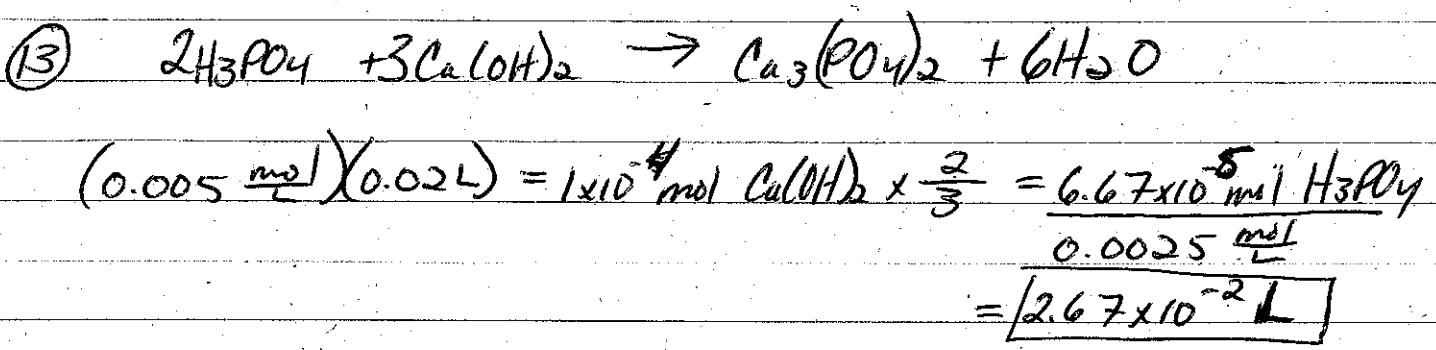 (13) 2H3PO4 + 3Ca(OH)2 → Ca3(PO4)2 + 6H2O
(0.005 mol/L)(0.02L) = 1x10^-4 mol Ca(OH)2 x 2/3 = 6.67x10^-5 mol H3PO4
0.0025 mol/L
= 2.67x10^-2 L